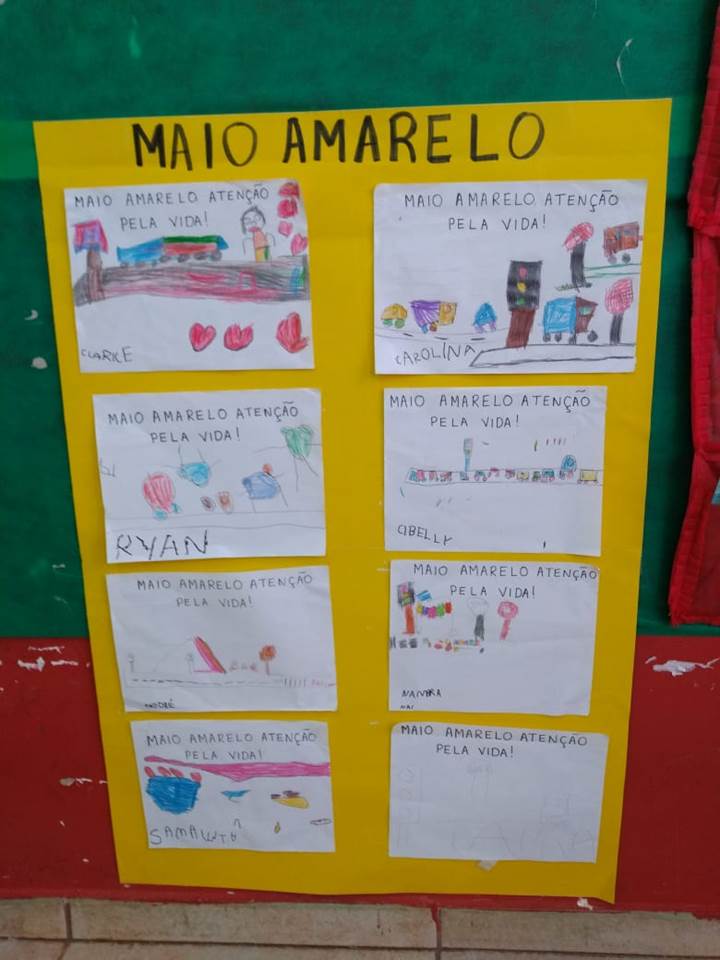 MAIO AMARELO
MAIO AMARELO ATENÇÃO
PELA VIDA!
CLARKE
MAIO AMARELO ATENÇÃO
PELA VIDA!
CAROLINA
MAIO AMARELO ATENÇÃO
PELA VIDA!
RYAN
MAIO AMARELO ATENÇÃO
PELA VIDA!
CIBELLY
MAIO AMARELO ATENÇÃO
PELA VIDA!
ANDRÉ
MAIO AMARELO ATENÇÃO
PELA VIDA!
MAIO AMARELO ATENÇÃO
PELA VIDA!
MAIO AMARELO ATENÇÃO
PELA VIDA!